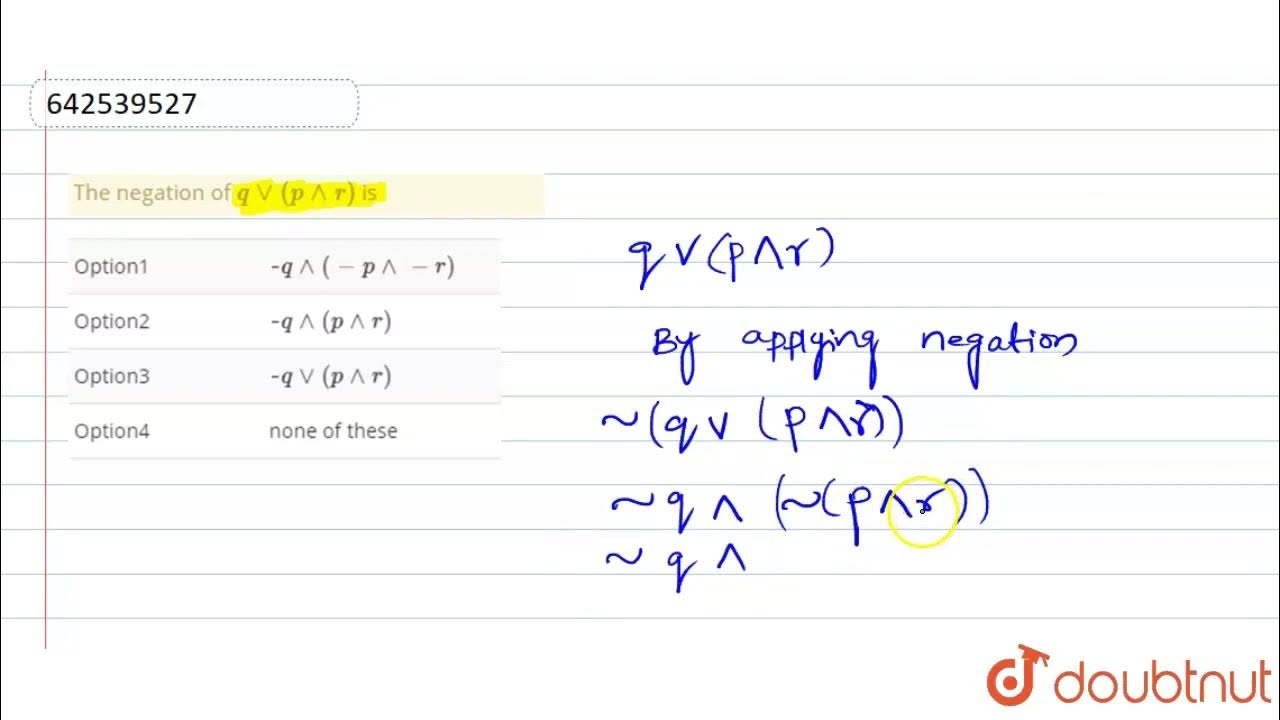 642539527
The negation of q ∨ (p ∧ r) is
Option1 -q ∧ ( − p ∧ − r)
Option2 -q ∧ (p ∧ r)
Option3 -q ∨ (p ∧ r)
Option4 none of these
q ∨ (p ∧ r)
By applying negation
~(q ∨ (p ∧ r))
~q ∧ (~(p ∧ r))
~q ∧
doubtnut